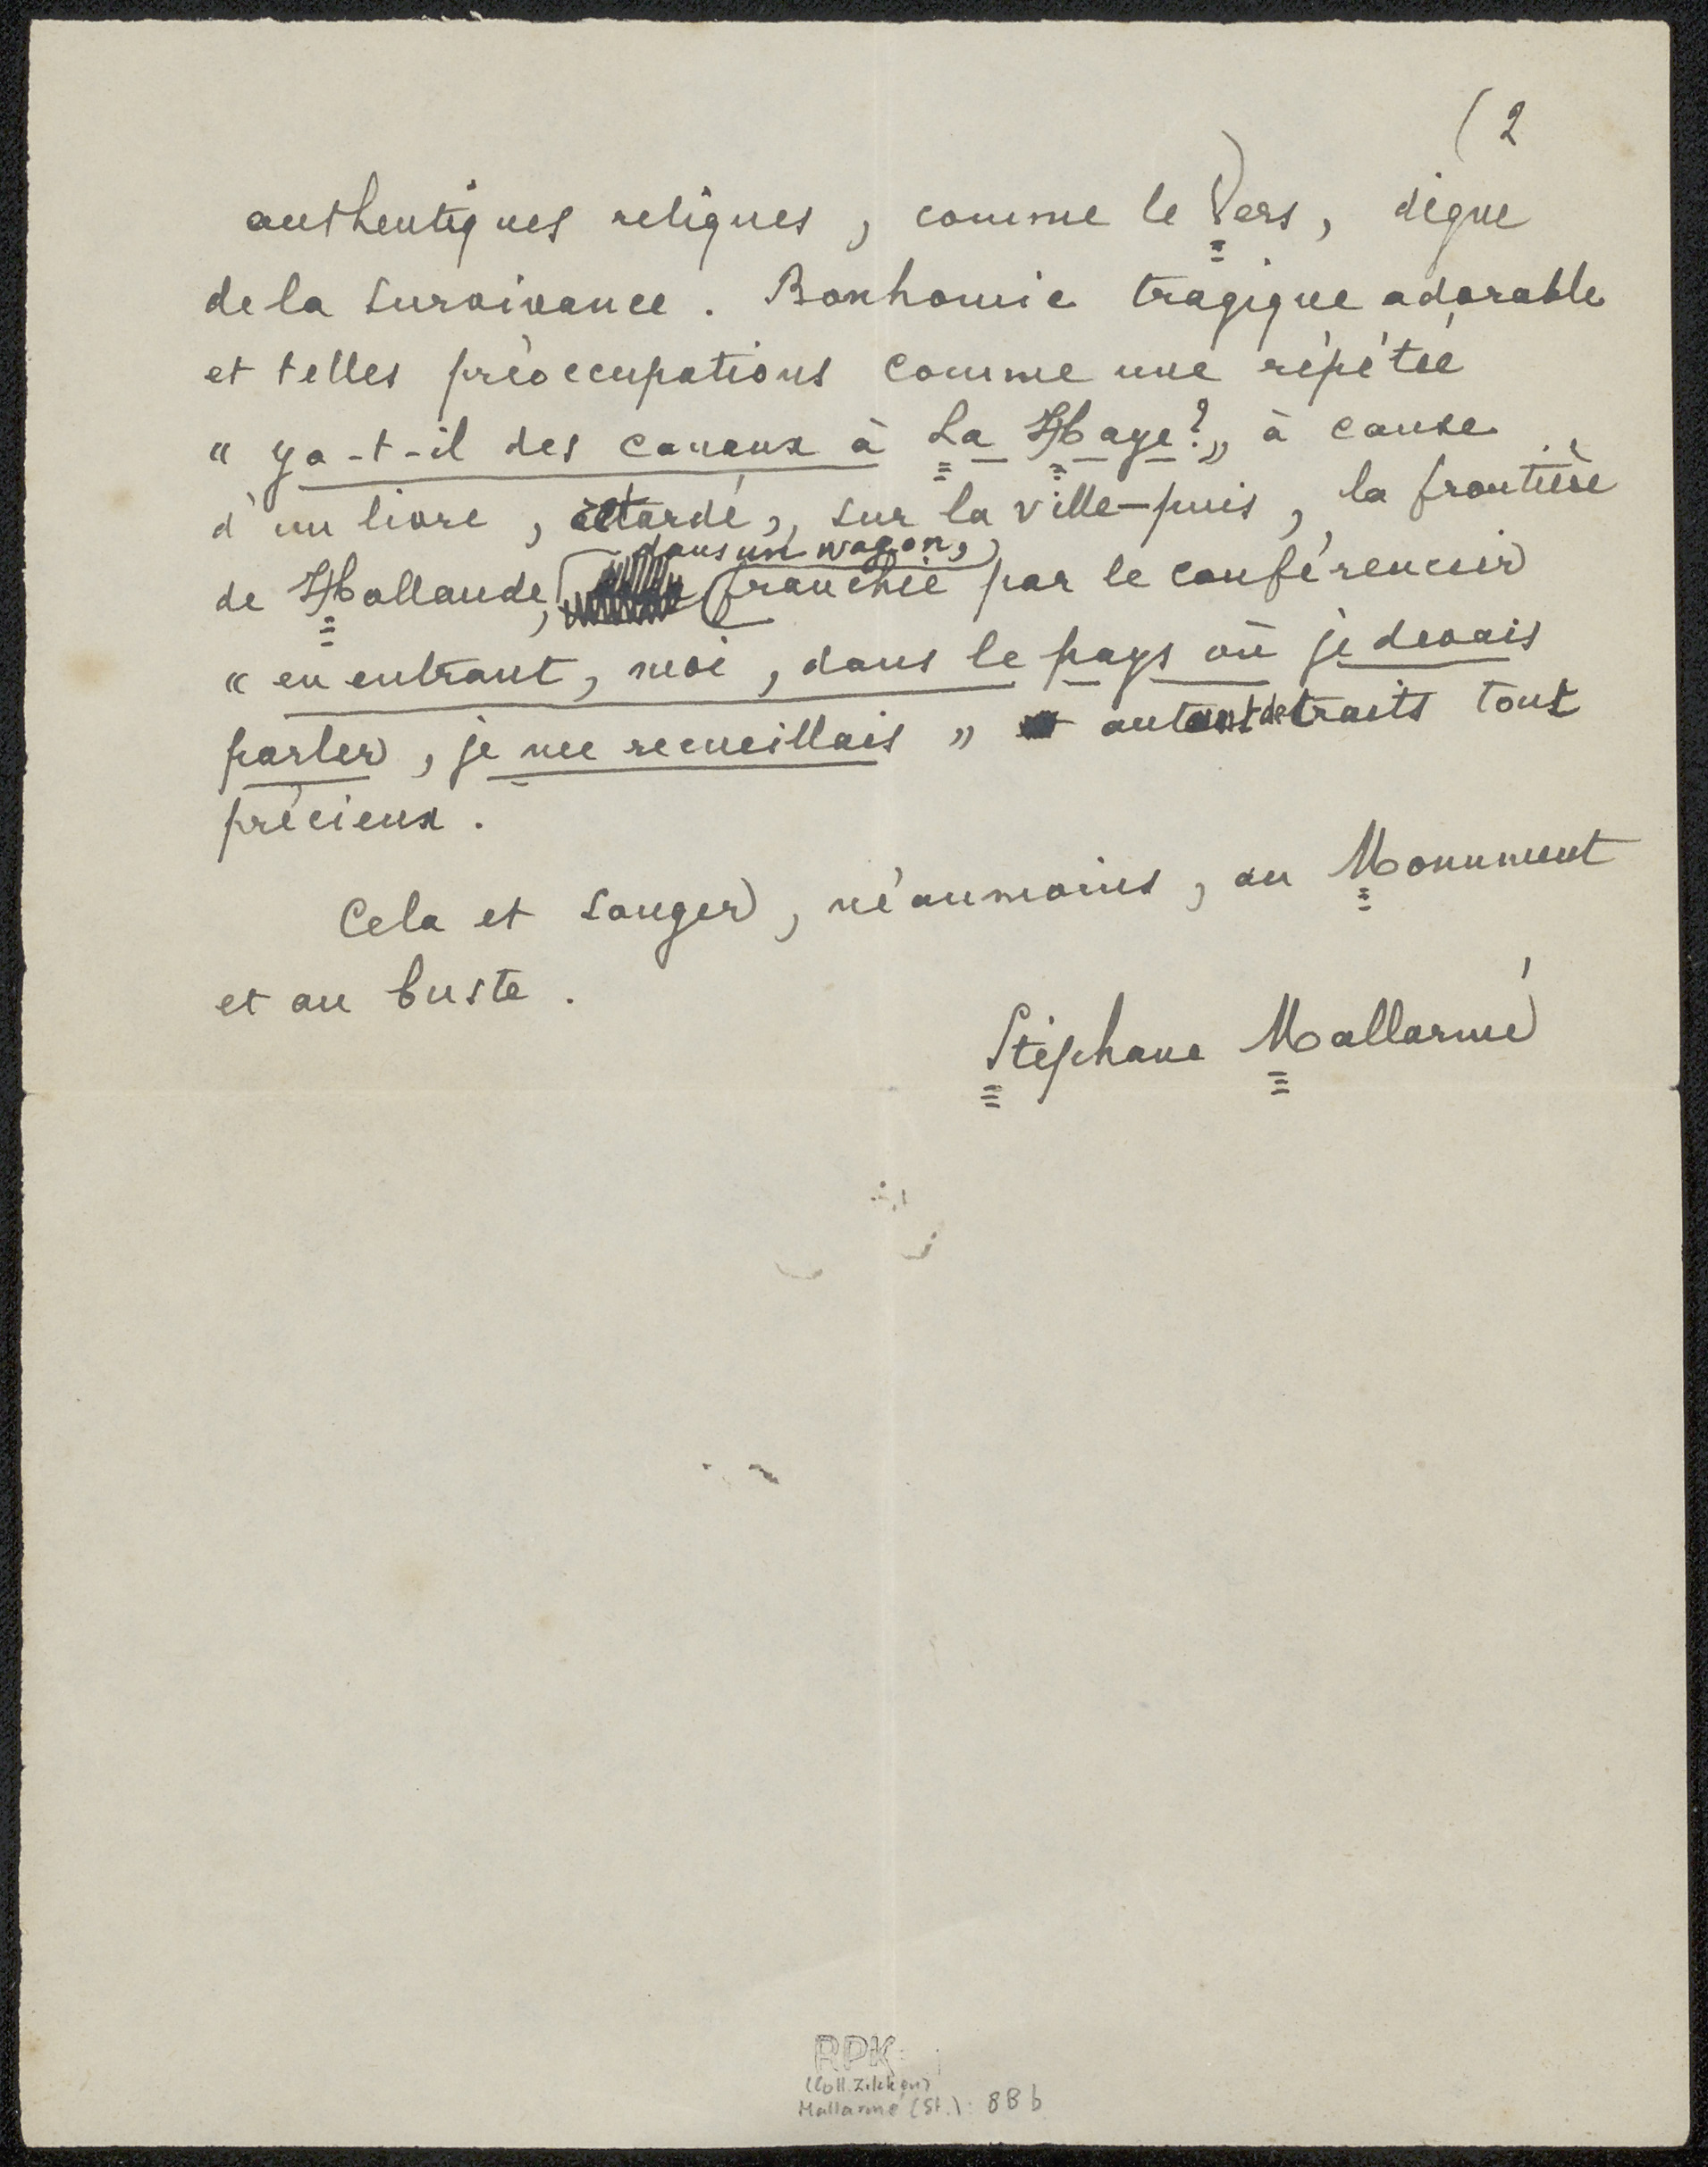 (2
authentiques reliques, comme le Vers, digne
de la survivance. Bonhomie tragique adorable
et telles préoccupations comme une répétée
« y a-t-il des canaux à La Haye? » à cause
d'un livre, attardé, sur la ville — puis, la frontière
dans un wagon,
de Hollande, franchie par le conférencier
« en entrant, moi, dans le pays où je devais
parler, je me recueillais » autant de traits tout
précieux.
Cela et songer, néanmoins, au Monument
et au buste.
Stéphane Mallarmé
RPK
(Coll. Zilcken)
Mallarmé (St.): 88 b